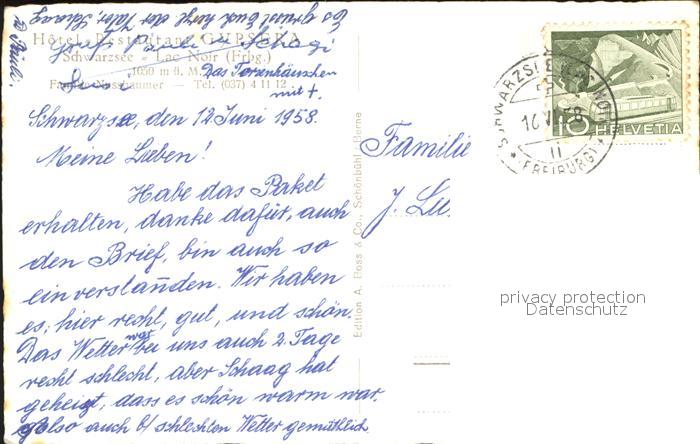 Es grüsst Euch herzl. der Vater, Schaag
Hôtel-Restaurant GYPSERA
Schwarzsee - Lac Noir (Frbg.)
1050 m ü. M.
Das Torsenhäuschen
Tel. (037) 4 11 12
mit +.
Schwarzsee, den 12. Juni 1958.
Meine Lieben!
Habe das Paket
erhalten, danke dafür, auch
den Brief, bin auch so
einverstanden. Wir haben
es, hier recht, gut, und schön
Das Wetter war bei uns auch 2. Tage
recht schlecht, aber Schaag hat
geheizt, dass es schön warm war.
Also auch b/ schlechten Wetter gemütlich.
Edition A. Boss & Co., Schönbühl/Berne
Familie
J. Lu
SCHWARZSEE
(FREIBURG)
10 HELVETIA
privacy protection
Datenschutz